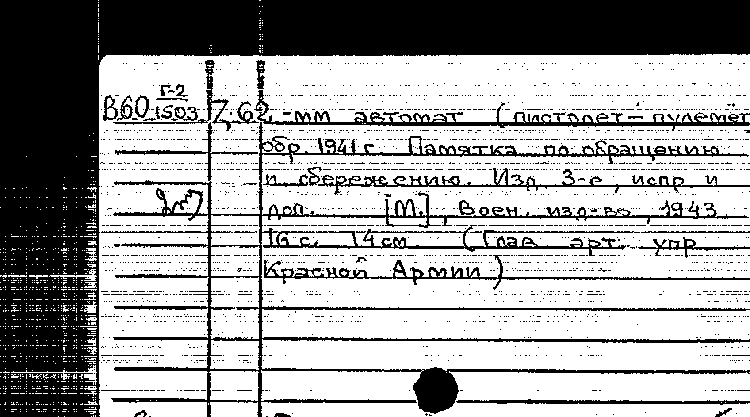 В60 Г-2
1503
7,62.-мм автомат (пистолет-пулемёт
обр. 1941 г. Памятка по обращению
и сбережению. Изд. 3-е, испр и
доп. [М.], Воен. изд-во, 1943
16 с. 14 см (Глав. арт. упр
Красной Армии)